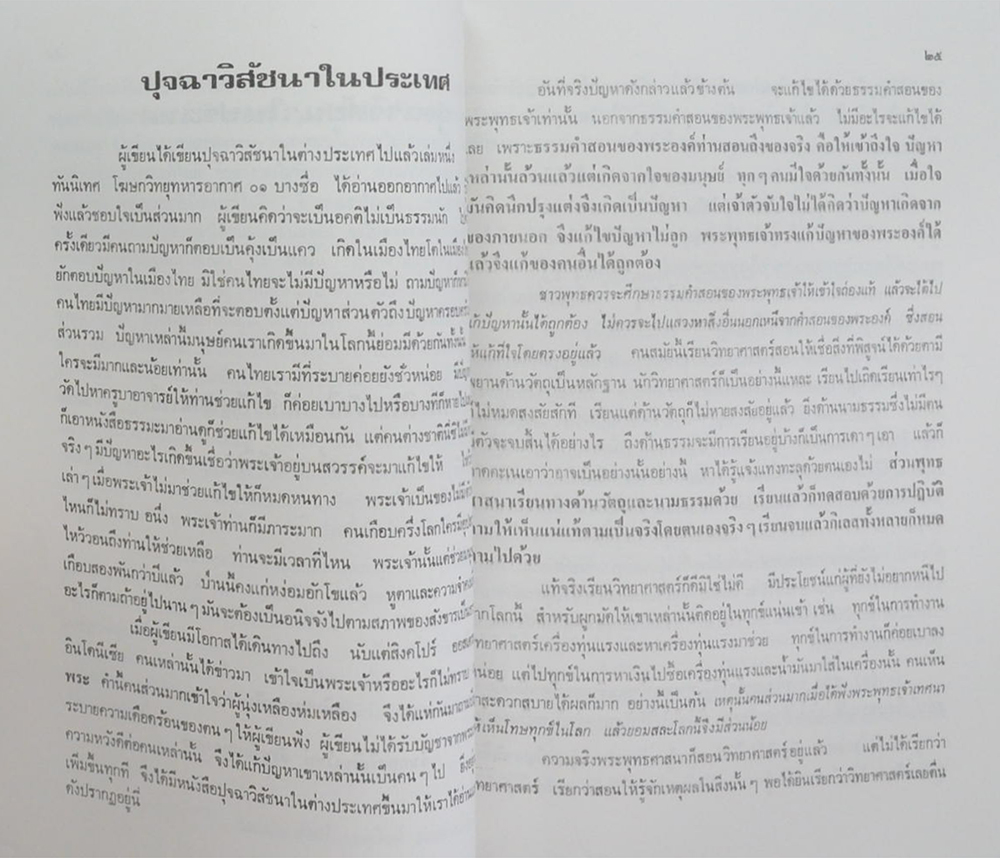 ปุจฉาวิสัชนาในประเทศ
ผู้เขียนได้เขียนปุจฉาวิสัชนาในต่างประเทศไปแล้วเล่มหนึ่ง
ทันนิเทศ โฆษกวิทยุทหารอากาศ ๐๑ บางซื่อ ได้อ่านออกอากาศไปแล้ว
ฟังแล้วชอบใจเป็นส่วนมาก ผู้เขียนคิดว่าจะเป็นอคติไม่เป็นธรรมนัก
ครั้งเดียวมีคนถามปัญหาก็ตอบเป็นคุ้งเป็นแคว เกิดในเมืองไทยโตในเมืองไทย
ยักตอบปัญหาในเมืองไทย มิใช่คนไทยจะไม่มีปัญหาหรือไม่ ถามปัญหาก็
คนไทยมีปัญหามากมายเหลือที่จะตอบตั้งแต่ปัญหาส่วนตัวถึงปัญหาครอบครัว
ส่วนรวม ปัญหาเหล่านี้มนุษย์คนเราเกิดขึ้นมาในโลกนี้ย่อมมีด้วยกันทั้งนั้น
ใครจะมีมากและน้อยเท่านั้น คนไทยเรามีที่ระบายค่อยยังชั่วหน่อย มีปัญหา
วัดไปหาครูบาอาจารย์ให้ท่านช่วยแก้ไข ก็ค่อยเบาบางไปหรือบางทีก็หายไป
ก็เอาหนังสือธรรมะมาอ่านดูก็ช่วยแก้ไขได้เหมือนกัน แต่คนต่างชาตินี่ซิ
จริงๆ มีปัญหาอะไรเกิดขึ้นเชื่อว่าพระเจ้าอยู่บนสวรรค์จะมาแก้ไขให้
เล่าๆ เมื่อพระเจ้าไม่มาช่วยแก้ไขให้ก็หมดหนทาง พระเจ้าเป็นของไม่มีตัว
ไหนก็ไม่ทราบ อนึ่ง พระเจ้าท่านก็มีภาระมาก คนเกือบครึ่งโลกใคร
ไหว้วอนถึงท่านให้ช่วยเหลือ ท่านจะมีเวลาที่ไหน พระเจ้านั้นแต่
เกือบสองพันกว่าปีแล้ว ป่านนี้คงแก่หง่อมอักโขแล้ว หูตาและความจำ
อะไรก็ตามถ้าอยู่ไปนานๆ มันจะต้องเป็นอนิจจังไปตามสภาพของสังขาร
เมื่อผู้เขียนมีโอกาสได้เดินทางไปถึง นับแต่สิงคโปร์
อินโดนีเซีย คนเหล่านั้นได้ข่าวมา เข้าใจเป็นพระเจ้าหรืออะไรก็ไม่ทราบ
พระ คำนี้คนส่วนมากเข้าใจว่าผู้นุ่งเหลืองห่มเหลือง จึงได้แห่กันมาถาม
ระบายความเดือดร้อนของตนๆ ให้ผู้เขียนฟัง ผู้เขียนไม่ได้รับบัญชาจากพระ
ความหวังดีต่อคนเหล่านั้น จึงได้แก้ปัญหาเขาเหล่านั้นเป็นคนๆ ไป
เพิ่มขึ้นทุกที จึงได้มีหนังสือปุจฉาวิสัชนาในต่างประเทศขึ้นมาให้เราได้อ่าน
ดังปรากฏอยู่นี้
๒๕
อันที่จริงปัญหาดังกล่าวแล้วข้างต้น จะแก้ไขได้ด้วยธรรมคำสอนของ
พระพุทธเจ้าเท่านั้น นอกจากธรรมคำสอนของพระพุทธเจ้าแล้ว ไม่มีอะไรจะแก้ไขได้
เลย เพราะธรรมคำสอนของพระองค์ท่านสอนถึงของจริง คือให้เข้าถึงใจ ปัญหา
เหล่านั้นล้วนแล้วแต่เกิดจากใจของมนุษย์ ทุกๆ คนมีใจด้วยกันทั้งนั้น เมื่อใจ
มันคิดนึกปรุงแต่งจึงเกิดเป็นปัญหา แต่เจ้าตัวจับใจไม่ได้คิดว่าปัญหาเกิดจาก
ของภายนอก จึงแก้ไขปัญหาไม่ถูก พระพุทธเจ้าทรงแก้ปัญหาของพระองค์ได้
แล้วจึงแก้ของคนอื่นได้ถูกต้อง
ชาวพุทธควรจะศึกษาธรรมคำสอนของพระพุทธเจ้าให้เข้าใจถ่องแท้ แล้วจะได้ไป
แก้ปัญหานั้นได้ถูกต้อง ไม่ควรจะไปแสวงหาสิ่งอื่นนอกเหนือจากคำสอนของพระองค์ ซึ่งสอน
ให้แก้ที่ใจโดยตรงอยู่แล้ว คนสมัยนี้เรียนวิทยาศาสตร์สอนให้เชื่อสิ่งที่พิสูจน์ได้ด้วยตามี
พยานด้านวัตถุเป็นหลักฐาน นักวิทยาศาสตร์ก็เป็นอย่างนี้แหละ เรียนไปเถิดเรียนเท่าไรๆ
ก็ไม่หมดสงสัยสักที เรียนแต่ด้านวัตถุก็ไม่หายสงสัยอยู่แล้ว ยิ่งด้านนามธรรมซึ่งไม่มีตน
มีตัวจะจบสิ้นได้อย่างไร ถึงด้านธรรมจะมีการเรียนอยู่บ้างก็เป็นการเดาๆ เอา แล้วก็
คาดคะเนเอาว่าอาจเป็นอย่างนั้นอย่างนี้ หาได้รู้แจ้งแทงทะลุด้วยตนเองไม่ ส่วนพุทธ
ศาสนาเรียนทางด้านวัตถุและนามธรรมด้วย เรียนแล้วก็ทดสอบด้วยการปฏิบัติ
ตามให้เห็นแน่แท้ตามเป็นจริงโดยตนเองจริงๆ เรียนจบแล้วกิเลสทั้งหลายก็หมด
ตามไปด้วย
แท้จริงเรียนวิทยาศาสตร์ก็ดีมิใช่ไม่ดี มีประโยชน์แก่ผู้ที่ยังไม่อยากหนีไป
จากโลกนี้ สำหรับผูกมัดให้เขาเหล่านั้นติดอยู่ในทุกข์แน่นเข้า เช่น ทุกข์ในการทำงาน
วิทยาศาสตร์เครื่องทุ่นแรงและหาเครื่องทุ่นแรงมาช่วย ทุกข์ในการทำงานก็ค่อยเบาลง
หน่อย แต่ไปทุกข์ในการหาเงินไปซื้อเครื่องทุ่นแรงและน้ำมันมาใส่ในเครื่องนั้น คนเห็น
ว่าสะดวกสบายได้ผลก็มาก อย่างนี้เป็นต้น เหตุนั้นคนส่วนมากเมื่อได้ฟังพระพุทธเจ้าเทศนา
ให้เห็นโทษทุกข์ในโลก แล้วยอมสละโลกนี้จึงมีส่วนน้อย
ความจริงพระพุทธศาสนาก็สอนวิทยาศาสตร์อยู่แล้ว แต่ไม่ได้เรียกว่า
วิทยาศาสตร์ เรียกว่าสอนให้รู้จักเหตุผลในสิ่งนั้นๆ พอได้ยินเรียกว่าวิทยาศาสตร์เลยตื่น